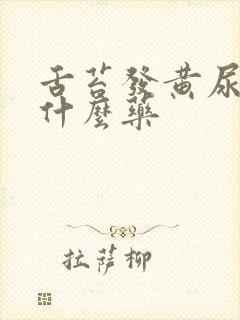 舌苔發黄尿
什麼藥
拉薩柳